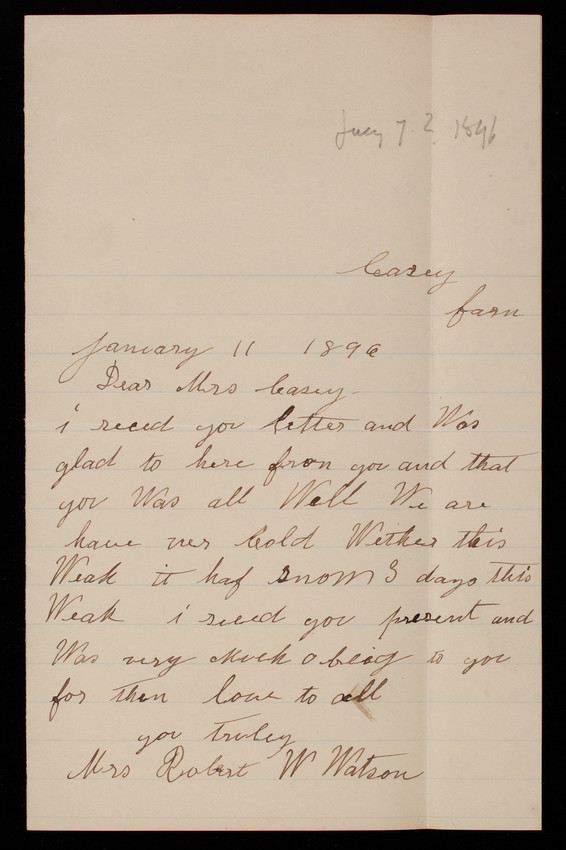 1896
Casey
farn
January 11 1896
Dear Mrs Casey
i reced you letter and Was
glad to here fron you and that
you Was all Well We are
have ver Cold Wether this
Weak it haf snow 3 days this
Weak i reced you present and
Was very Much obeig to you
for then love to all
you truley
Mrs Robert W Watson